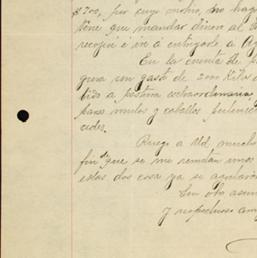 $200, por cuyo motivo, no hay
tiene que mandar dinero al
recojer é ir á entregarle a Ag
En la cuenta de p
gura un gasto de 200 kilos d
tido a pastura extraordinaria
para mulas y caballos pertenec
cedes.
Ruego a Ud. mucho
fin de que se me remitan unos
estas dos cosas ya se agotaron
En otro asun
y respetuoso am